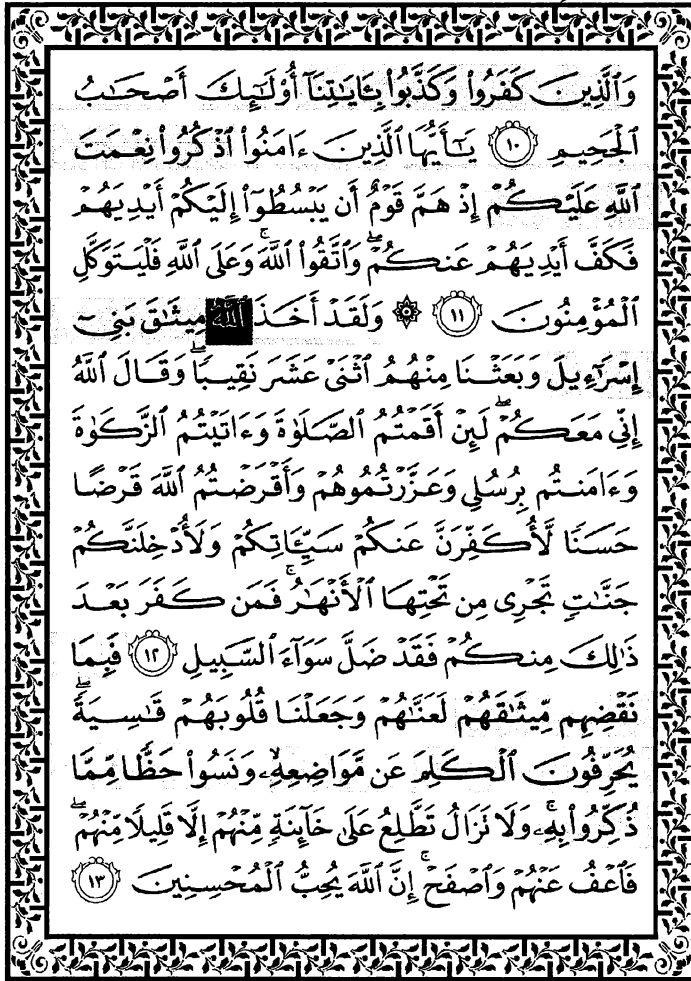 وَٱلَّذِينَ كَفَرُواْ وَكَذَّبُواْ بِـَٔايَٰتِنَآ أُوْلَٰٓئِكَ أَصۡحَٰبُ
ٱلۡجَحِيمِ ١٠ يَٰٓأَيُّهَا ٱلَّذِينَ ءَامَنُواْ ٱذۡكُرُواْ نِعۡمَتَ
ٱللَّهِ عَلَيۡكُمۡ إِذۡ هَمَّ قَوۡمٌ أَن يَبۡسُطُوٓاْ إِلَيۡكُمۡ أَيۡدِيَهُمۡ
فَكَفَّ أَيۡدِيَهُمۡ عَنكُمۡۖ وَٱتَّقُواْ ٱللَّهَۚ وَعَلَى ٱللَّهِ فَلۡيَتَوَكَّلِ
ٱلۡمُؤۡمِنُونَ ١١ ۞ وَلَقَدۡ أَخَذَ ٱللَّهُ مِيثَٰقَ بَنِيٓ
إِسۡرَٰٓءِيلَ وَبَعَثۡنَا مِنۡهُمُ ٱثۡنَيۡ عَشَرَ نَقِيبٗاۖ وَقَالَ ٱللَّهُ
إِنِّي مَعَكُمۡۖ لَئِنۡ أَقَمۡتُمُ ٱلصَّلَوٰةَ وَءَاتَيۡتُمُ ٱلزَّكَوٰةَ
وَءَامَنتُم بِرُسُلِي وَعَزَّرۡتُمُوهُمۡ وَأَقۡرَضۡتُمُ ٱللَّهَ قَرۡضًا
حَسَنٗا لَّأُكَفِّرَنَّ عَنكُمۡ سَيِّـَٔاتِكُمۡ وَلَأُدۡخِلَنَّكُمۡ
جَنَّٰتٖ تَجۡرِي مِن تَحۡتِهَا ٱلۡأَنۡهَٰرُۚ فَمَن كَفَرَ بَعۡدَ
ذَٰلِكَ مِنكُمۡ فَقَدۡ ضَلَّ سَوَآءَ ٱلسَّبِيلِ ١٢ فَبِمَا
نَقۡضِهِم مِّيثَٰقَهُمۡ لَعَنَّٰهُمۡ وَجَعَلۡنَا قُلُوبَهُمۡ قَٰسِيَةٗۖ
يُحَرِّفُونَ ٱلۡكَلِمَ عَن مَّوَاضِعِهِۦۙ وَنَسُواْ حَظّٗا مِّمَّا
ذُكِّرُواْ بِهِۦۚ وَلَا تَزَالُ تَطَّلِعُ عَلَىٰ خَآئِنَةٖ مِّنۡهُمۡ إِلَّا قَلِيلٗا مِّنۡهُمۡۖ
فَٱعۡفُ عَنۡهُمۡ وَٱصۡفَحۡۚ إِنَّ ٱللَّهَ يُحِبُّ ٱلۡمُحۡسِنِينَ ١٣